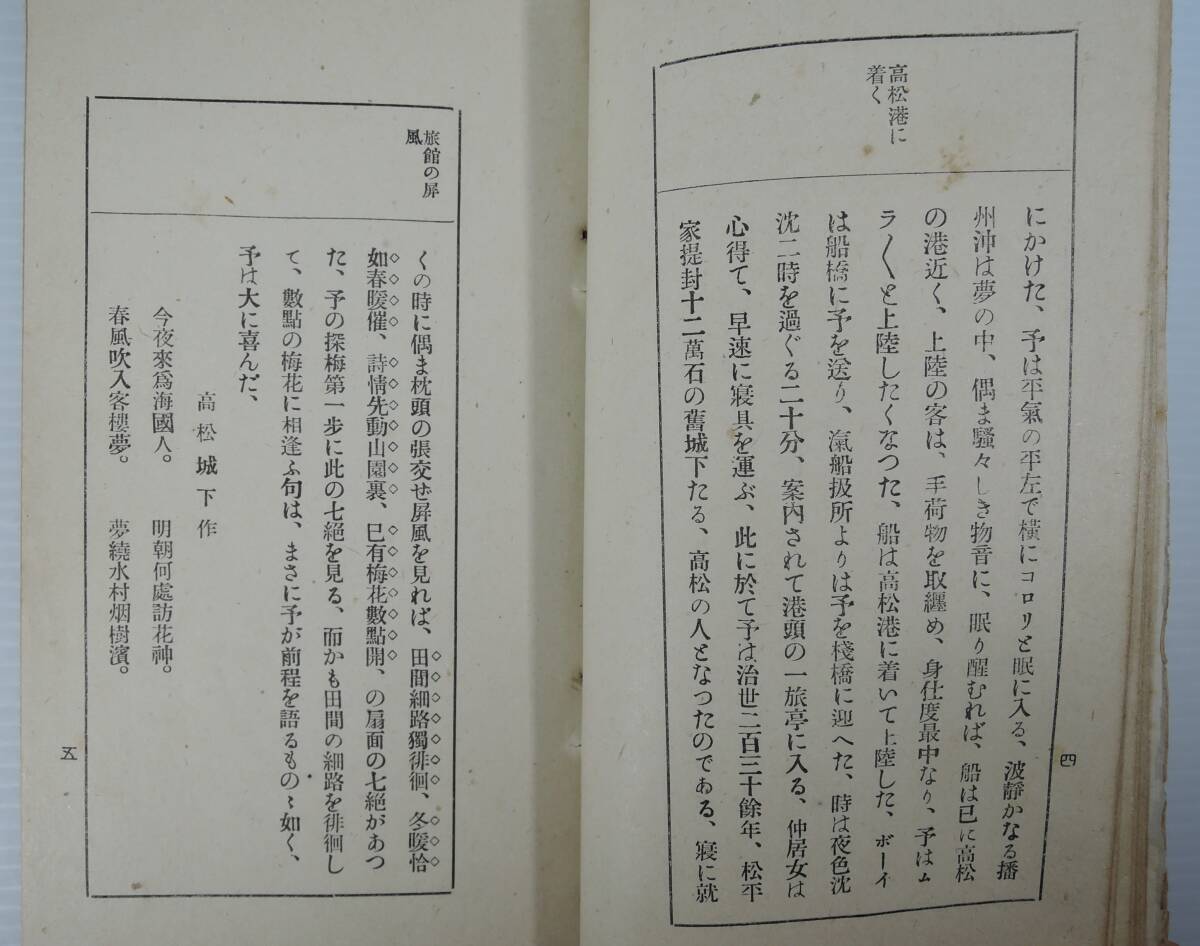 高松港に
着く
にかけた、予は平氣の平左で横にコロリと眠に入る、波靜かなる播
州沖は夢の中、偶ま騷々しき物音に、眠り醒むれば、船は已に高松
の港近く、上陸の客は、手荷物を取纏め、身仕度最中なり、予はム
ラ〱と上陸したくなつた、船は高松港に着いて上陸した、ボーイ
は船橋に予を送り、滊船扱所よりは予を棧橋に迎へた、時は夜色沈
沈二時を過ぐる二十分、案內されて港頭の一旅亭に入る、仲居女は
心得て、早速に寢具を運ぶ、此に於て予は治世二百三十餘年、松平
家提封十二萬石の舊城下たる、高松の人となつたのである、寢に就
四
旅館の屛
風
くの時に偶ま枕頭の張交ぜ屛風を見れば、田間細路獨徘徊、冬暖恰
如春暖催、詩情先動山園裏、已有梅花數點開、の扇面の七絕があつ
た、予の探梅第一步に此の七絕を見る、而かも田間の細路を徘徊し
て、數點の梅花に相逢ふ句は、まさに予が前程を語るものゝ如く、
予は大に喜んだ、
高松城下作
今夜來爲海國人。 明朝何處訪花神。
春風吹入客樓夢。 夢繞水村烟樹濱。
五